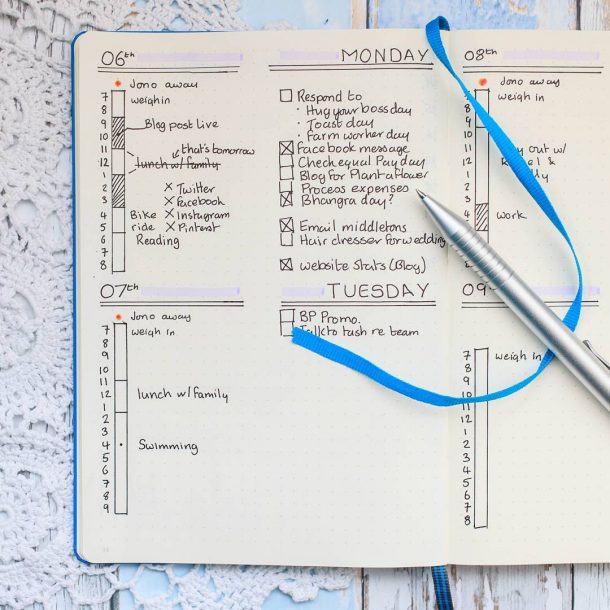 06th MONDAY
Jono away
7 weigh in
8
9 Blog post Live
10
11 that's tomorrow
12 lunch w/ family
1
2 X Twitter
3 X Facebook
4 Bike X Instagram
5 ride X Pinterest
6 Reading
7
8
Respond to
· Hug your boss day
· Toast day
· Farm worker day
Facebook message
Check equal Pay day
Blog for Plant a flower
Process expenses
Bhangra day?
Email middletons
Hair dresser for wedding
website stats (Blog)
07th TUESDAY
Jono away
7 weigh in
8
9
10
11
12 lunch w/ family
1
2
3
4 Swimming
5
6
7
8
9
BP Promo.
Talk to tash re team
08th
Jono away
7 weigh in
8
9
10
11 out w/
12
1
2
3
4 work
5
6
7
8
09
7 weigh in
8
9
10
11
12
1
2
3
4
5
6
7
8